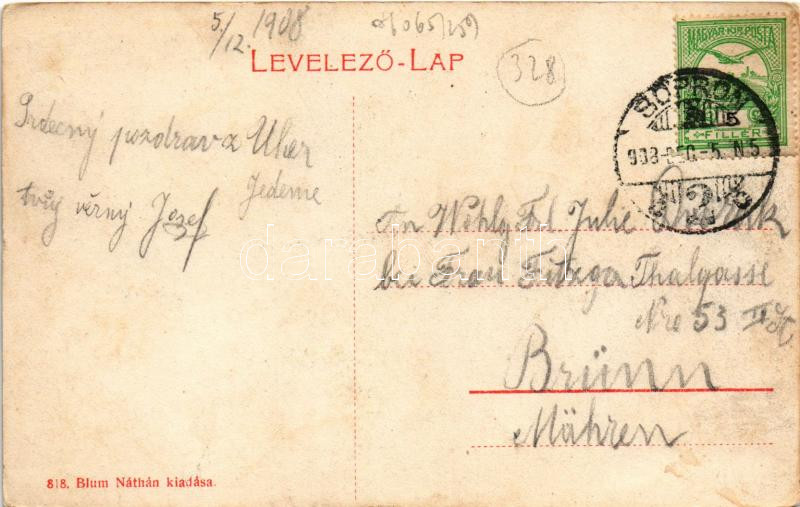 5/12. 1908
328
LEVELEZŐ-LAP
MAGYAR KIR. POSTA
5
FILLÉR
SOPRON
908-DEC.-5. N5
Srdecný pozdrav z Uher
Jedeme
tvůj věrný Josef
An Wohlg Frl Julie
bei Frau Thalgasse
Nro 53 II
Brünn
Mähren
818. Blum Náthán kiadása.
darabanth